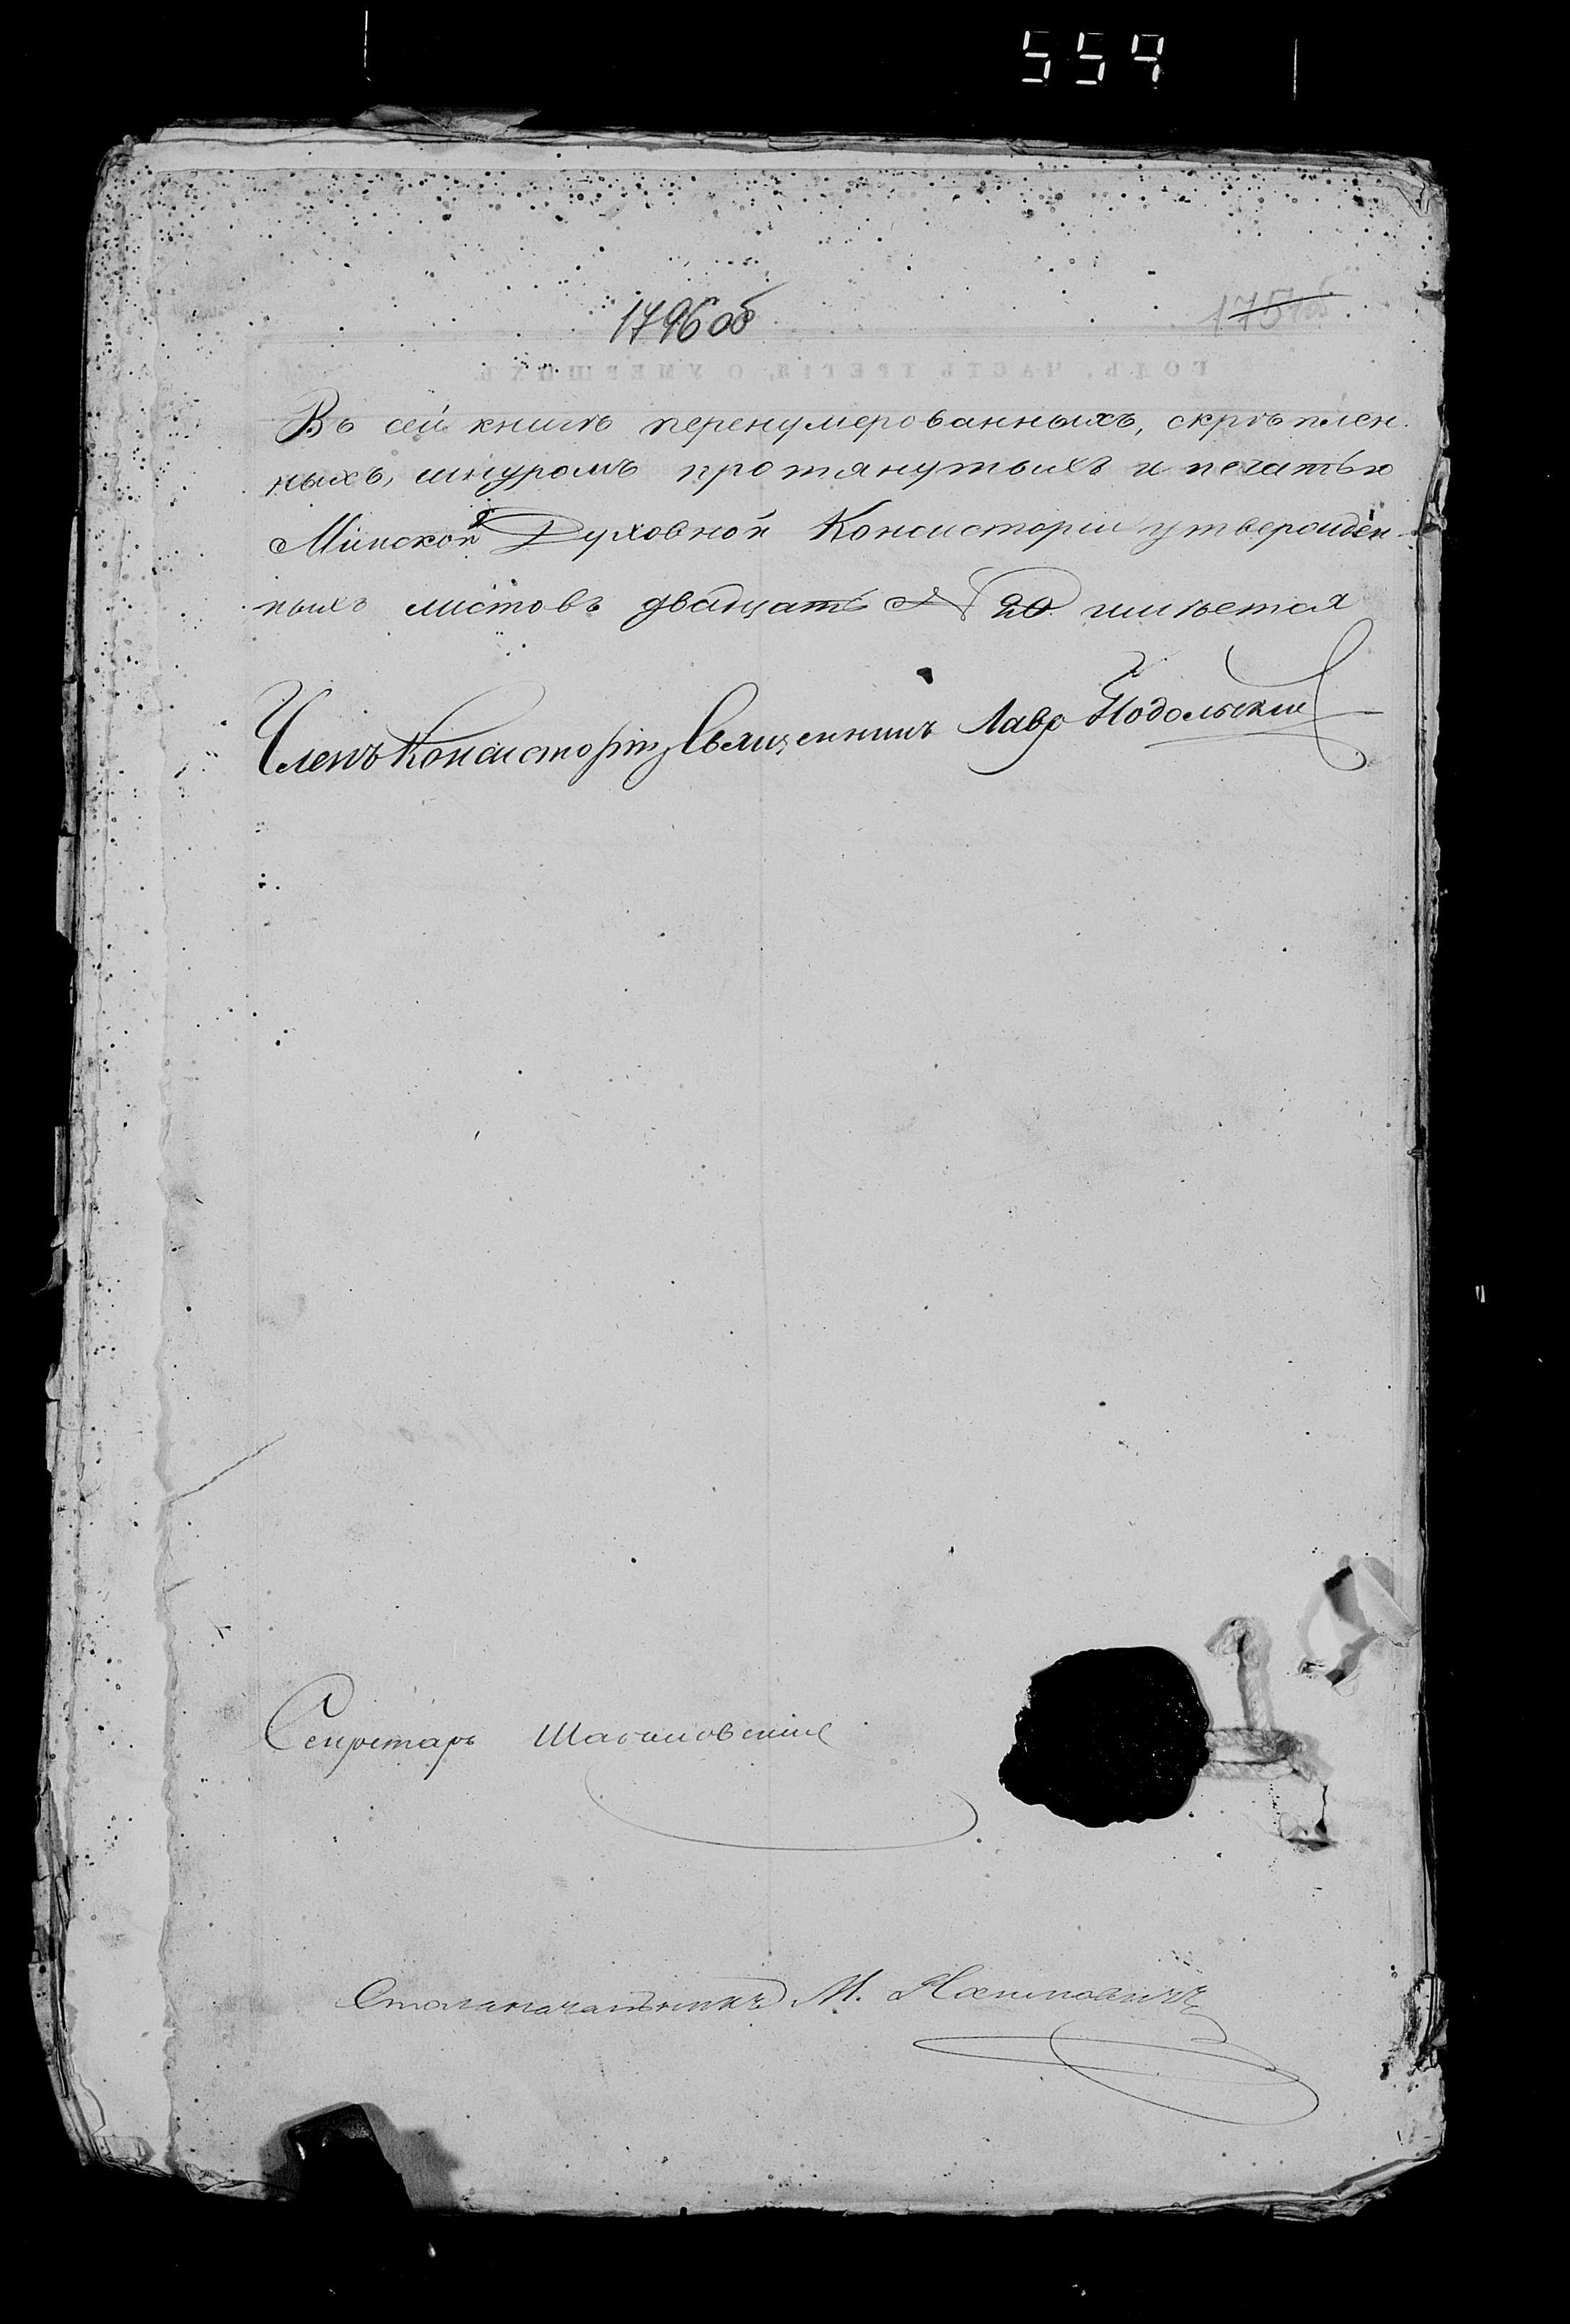 554
1796 об
175 об
ГОДЪ, ЧАСТЬ ТРЕТІЯ, О УМЕРШИХЪ.
Въ сей книгѣ перенумерованныхъ, скрѣплен
ныхъ, шнуромъ протянутыхъ и печатью
Минской Духовной Консисторіи утвержден-
ныхъ листовъ двадцать № 20 имѣется
Членъ Консисторіи, Священникъ Лавр Подольскій
Секретарь
Столоначальникъ М.